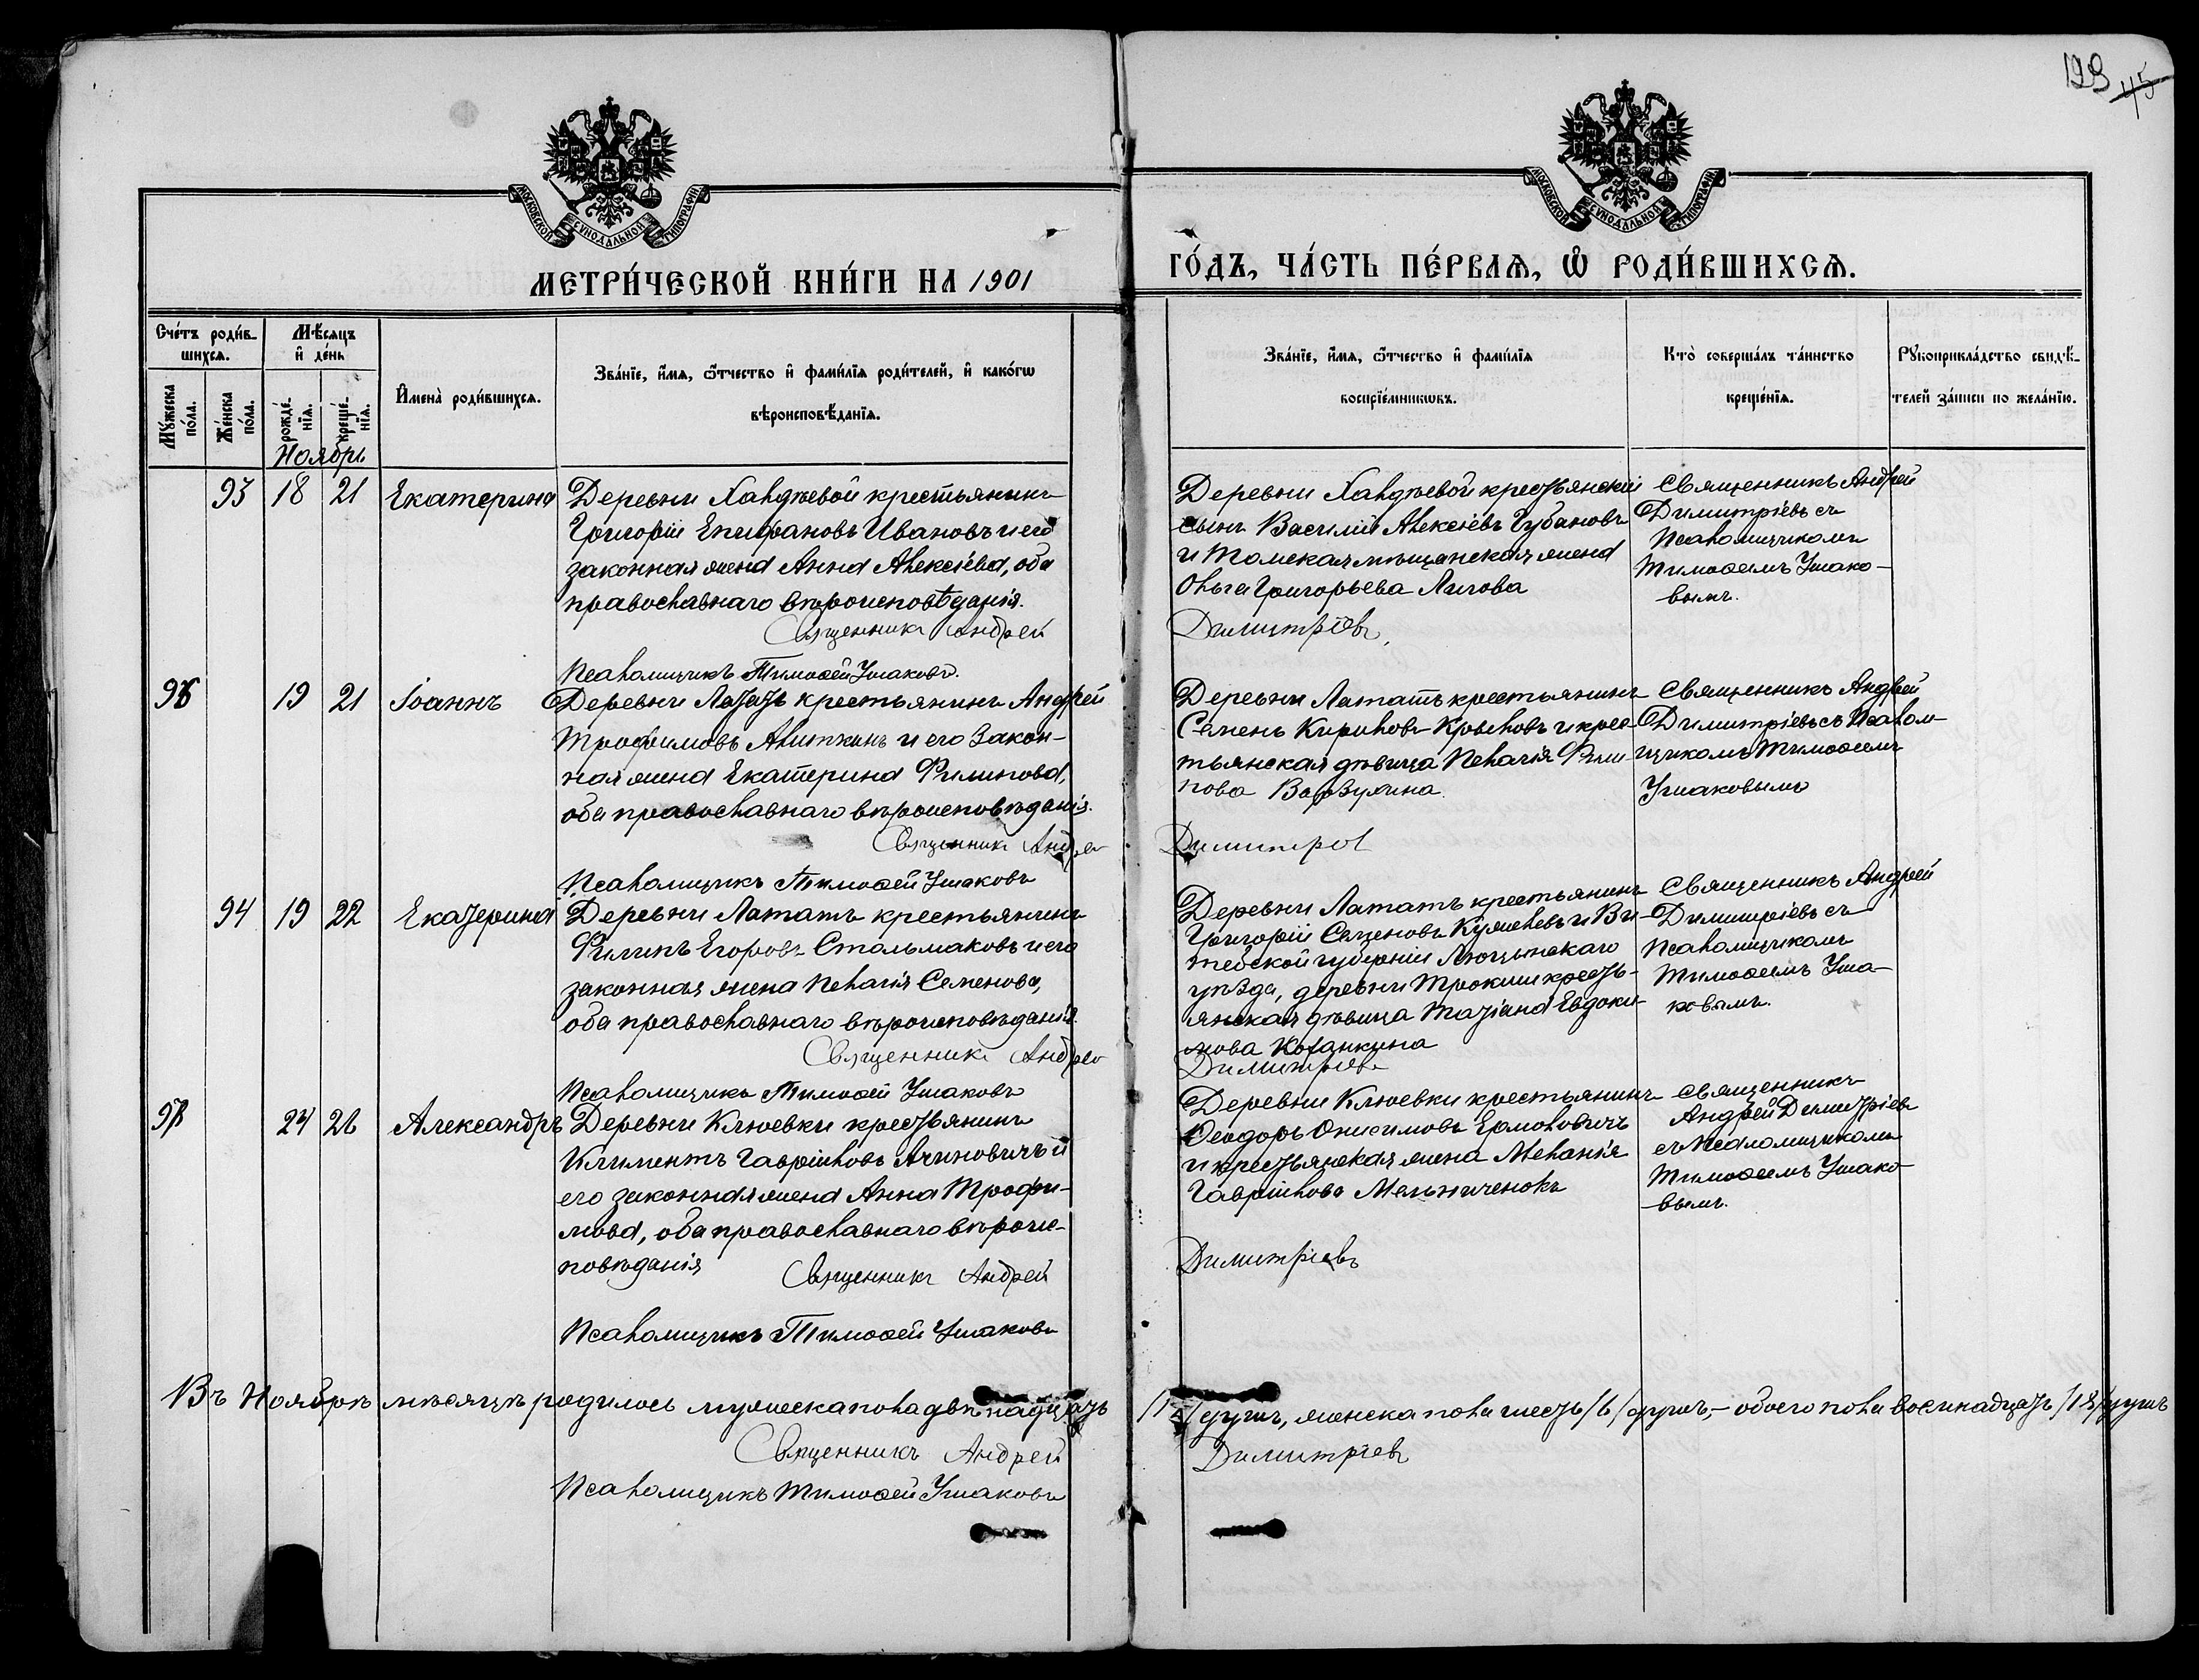 129 45
МОСКОВСКОЙ СѴНОДАЛЬНОЙ ТИПОГРАФІИ
МОСКОВСКОЙ СѴНОДАЛЬНОЙ ТИПОГРАФІИ
МЕТРИ́ЧЕСКОЙ КНИ́ГИ НА 1901
ГО́ДЪ, ЧА́СТЬ ПЕ́РВАѦ, Ѽ РОДИ́ВШИХСѦ.
Сче́тъ роди́в-
шихсѧ.
Мꙋжеска по́ла.
Же́нска по́ла.
Мѣ́сяцъ
и҆ де́нь
рожде́-
нїѧ.
креще́-
нїѧ.
Ноябрь
И҆мена̀ роди́вшихсѧ.
Зва́нїе, и҆́мѧ, ѻ҆́тчество и҆ фами́лїѧ роди́телей, и҆ како́гѡ
вѣроисповѣ́данїѧ.
Зва́нїе, и҆́мѧ, ѻ҆́тчество и҆ фами́лїѧ
воспрїе́мникѡвъ.
Кто̀ соверша́лъ та́инство
креще́нїѧ.
Рꙋкоприкла́дство свидѣ́-
телей за́писи по жела́нїю.
93 18 21 Екатерина
Деревни Хандѣевой крестьянинъ
Григорій Епифановъ Ивановъ и его
законная жена Анна Алексіева, оба
православнаго вѣроисповѣданія.
Священникъ Андрей
Псаломщикъ Тимофей Ушаковъ.
Деревни Хандѣевой крестьянскій
сынъ Василій Алексіевъ Губановъ
и Томская мѣщанская жена
Ольга Григорьева Лигова
Димитріевъ,
Священникъ Андрей
Димитріевъ съ
Псаломщикомъ
Тимофеемъ Ушако-
вымъ.
19 21 Іоаннъ
Деревни Лататъ крестьянинъ Андрей
Трофимовъ Алиткинъ и его закон-
ная жена Екатерина Филипова,
оба православнаго вѣроисповѣданія.
Священникъ Андрей
Псаломщикъ Тимофей Ушаковъ
Деревни Лататъ крестьянинъ
Семенъ Кириловъ Крыловъ и крес-
тьянская дѣвица Пелагія Фили-
пова Варзугина
Димитріев
Священникъ Андрей
Димитріевъ съ Псалом-
щикомъ Тимофеемъ
Ушаковымъ
94 19 22 Екатерина
Деревни Лататъ крестьянинъ
Филипъ Егоровъ Стальмаковъ и его
законная жена Пелагія Семенова,
оба православнаго вѣроисповѣданія.
Священникъ Андрей
Псаломщикъ Тимофей Ушаковъ
Деревни Лататъ крестьянинъ
Григорій Семеновъ Кужелевъ и Ви-
тебской губерніи Люцынскаго
уѣзда, деревни Трокши кресть-
янская дѣвица Татіана Евдоки-
мова Коханкина
Димитріевъ
Священникъ Андрей
Димитріевъ съ
Псаломщикомъ
Тимофеемъ Уша-
ковымъ.
24 26 Александръ
Деревни Клюевки крестьянинъ
Климентъ Гавріиловъ Ачиновичъ и
его законная жена Анна Трофи-
мова, оба православнаго вѣроис-
повѣданія
Священникъ Андрей
Псаломщикъ Тимофей Ушаковъ
Деревни Клюевки крестьянинъ
Ѳеодоръ Онисимовъ Ермоловичъ
и крестьянская жена Меланія
Гавріилова Мельниченокъ
Димитріевъ
Священникъ
Андрей Димитріевъ
съ Псаломщикомъ
Тимофеемъ Ушако-
вымъ.
Въ Ноябрѣ мѣсяцѣ родилось мужеска пола двѣнадцать /12/ душъ, женска пола шесть /6/ душъ,- обоего пола восемнадцать /18/ душъ
Священникъ Андрей Димитріевъ
Псаломщикъ Тимофей Ушаковъ